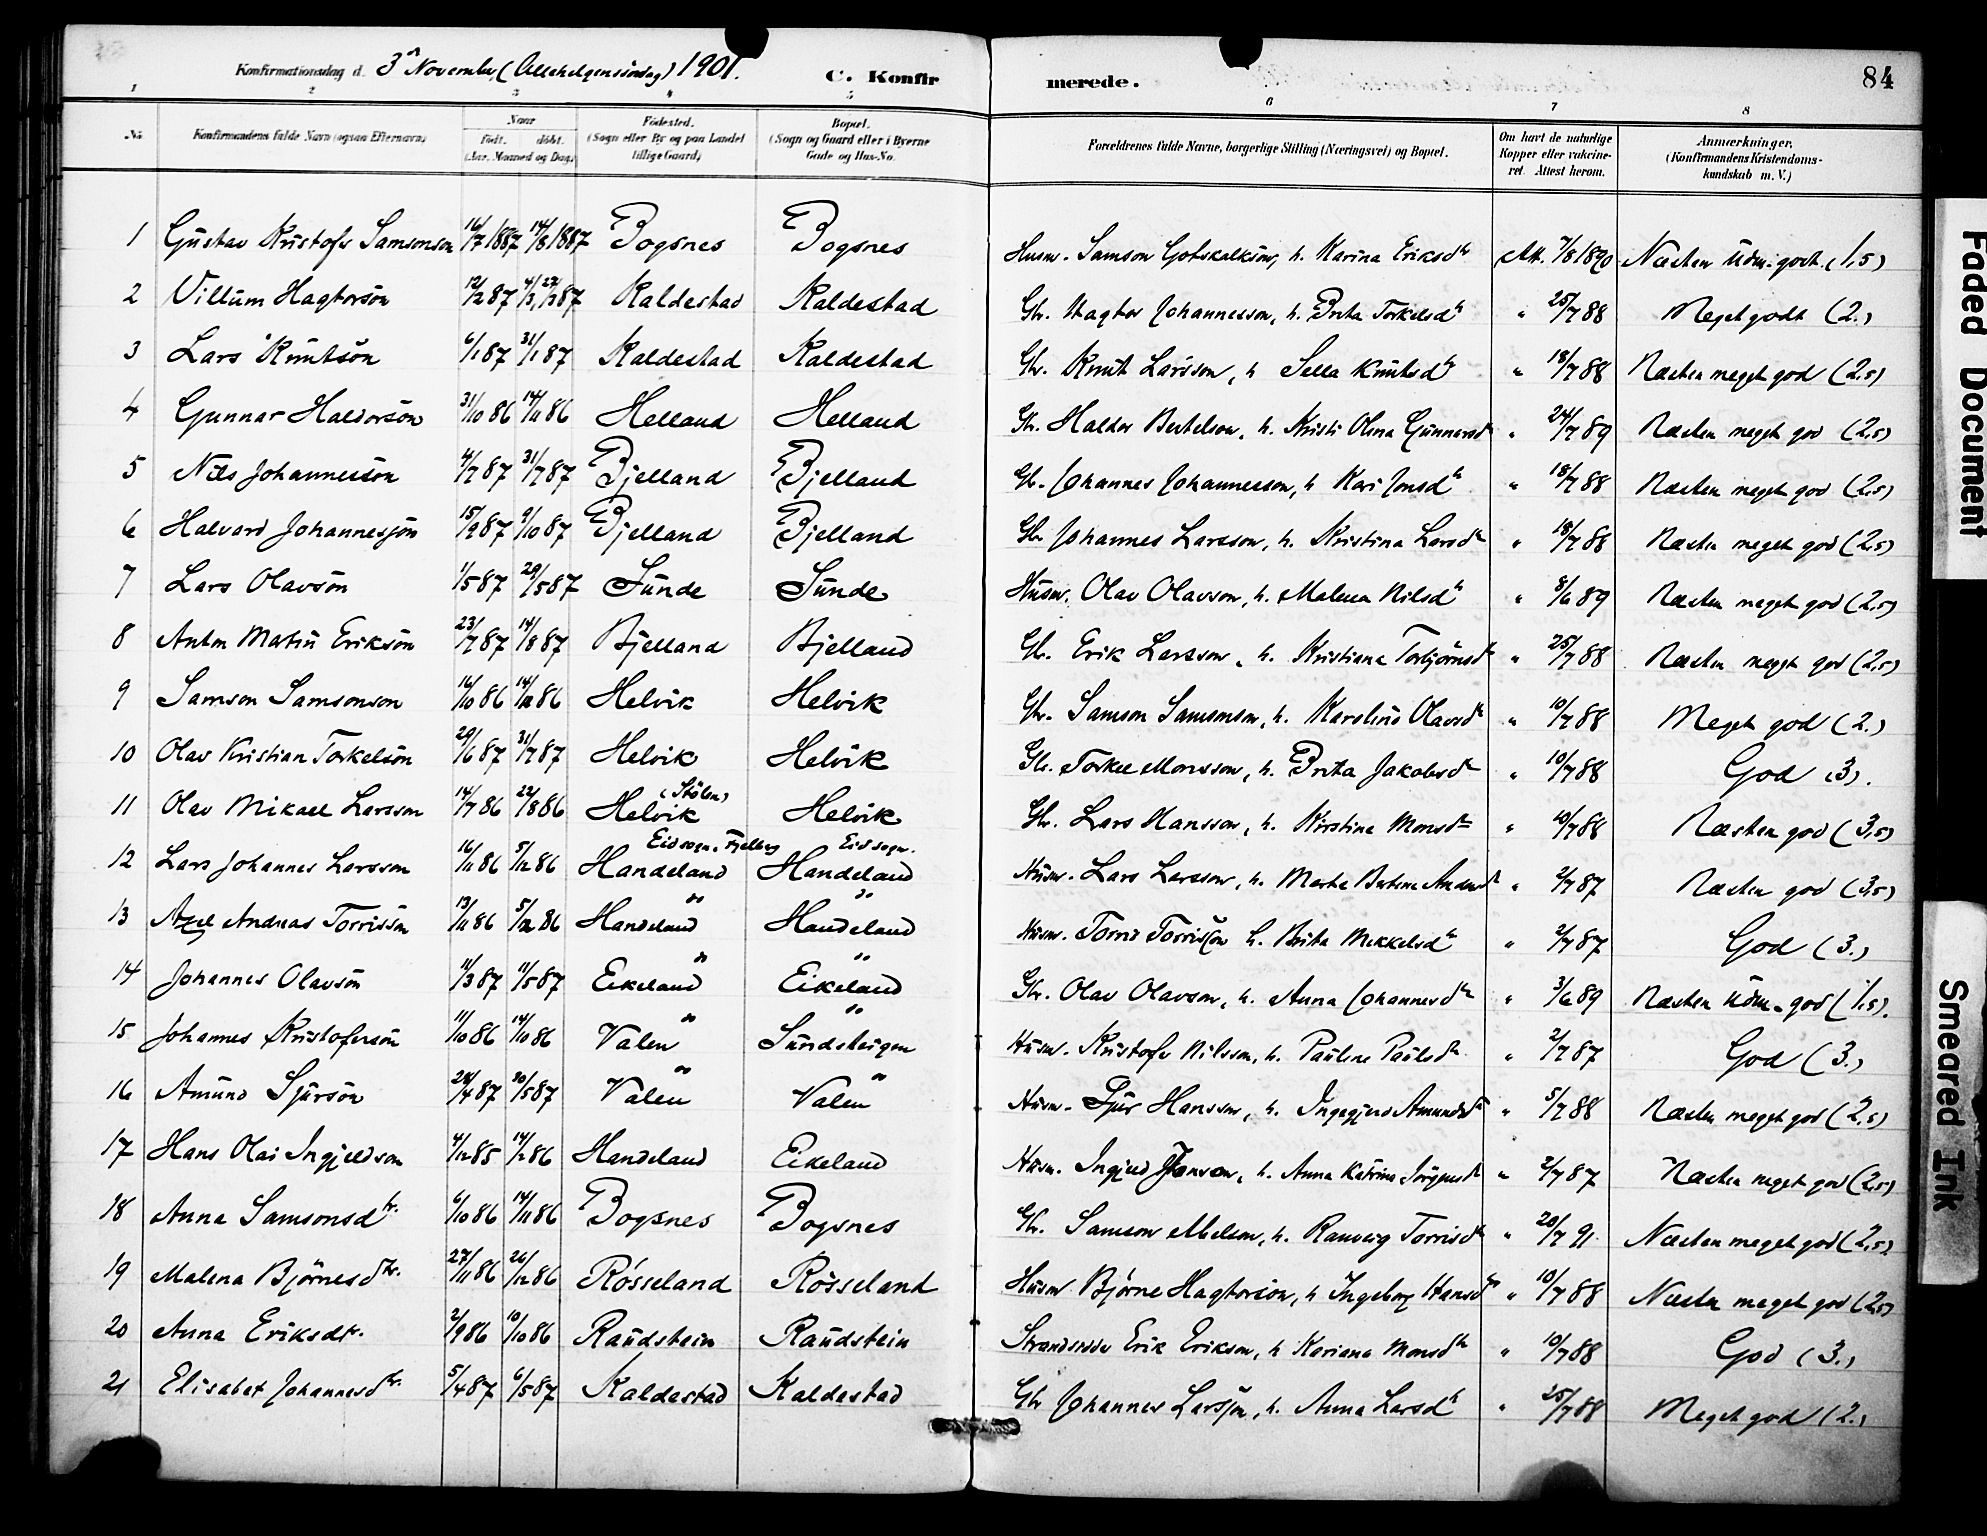 Konfirmationsdag d. 3die November (Allehelgensöndag) 1901. C. Konfirmerede. 84
1 2 3 4 5 6 7 8
No. Konfirmandens fulde Navn (ogsaa Efternavn) Naar födt. döbt. (Aar, Maaned og Dag.) Födested. (Sogn eller By og paa Landet tillige Gaard) Bopæl. (Sogn og Gaard eller i Byerne Gade og Hus-No. Forældrenes fulde Navne, borgerlige Stilling (Næringsvei) og Bopæl. Om havt de naturlige Kopper eller vakcineret. Attest herom. Anmærkninger. (Konfirmandens Kristendomskundskab m. V.)
1 Gustav Kristofer Samsonson 16/7 1887 14/8 1887 Bogsnes Bogsnes Husm. Samson Gotskalkson, h. Karina Eriksdtr Att. 7/8 1890 Næsten udm. godt (1,5)
2 Villum Hagtorson 12/2 87 Kaldestad Kaldestad Gbr. Hagtor Johannesson, h. Brita Torkelsdtr " 25/7 88 Meget godt (2.)
3 Lars Knutson 6/1 87 31/1 87 Kaldestad Kaldestad Gbr. Knut Larsson, h. Sella Knutsdtr " 18/7 88 Næsten meget god (2,5)
4 Gunnar Haldorson 31/10 86 14/11 86 Helland Helland Gbr. Haldor Bertelson, h. Kristi Olena Gunnarsdtr " 24/7 89 Næsten meget god (2,5)
5 Nils Johannesson 4/7 87 31/7 87 Bjelland Bjelland Gbr. Johannes Johannesson, h. Kari Jonsdtr " 18/7 88 Næsten meget god (2,5)
6 Halvard Johannesson 15/9 87 9/10 87 Bjelland Bjelland Gbr Johannes Larsson, h. Kristina Larsdtr " 18/7 88 Næsten meget god (2,5)
7 Lars Olavson 1/5 87 29/5 87 Sunde Sunde Husm. Olav Olavson, h. Malena Nilsdtr " 8/6 89 Næsten meget god (2,5)
8 Anton Matin Erikson 23/7 87 14/8 87 Bjelland Bjelland Gbr. Erik Larsson, h. Kristiana Torbjörnsdtr " 25/7 88 Næsten meget god (2,5)
9 Samson Samsonson 16/10 86 14/11 86 Helvik Helvik Gbr. Samson Samsonson, h. Karolina Olavsdtr " 10/7 88 Meget god (2.)
10 Olav Kristian Torkelson 29/6 87 31/7 87 Helvik Helvik Gbr. Torkel Monsson, h. Brita Jakobsdtr " 10/7 88 God (3).
11 Olav Mikael Larsson 14/7 86 22/8 86 Helvik (Stölen) Helvik Gbr. Lars Hansson, h. Kirstina Monsdtr " 10/7 88 Næsten god (3,5)
12 Lars Johannes Larsson 16/11 86 5/12 86 Eid sogn, Fjelberg Handeland Eid sogn. Handeland Husm. Lars Larsson, h. Marta Bertine Andersdtr " 2/7 87 Næsten god (3,5)
13 Axel Andreas Torrisson 13/11 86 5/12 86 Handeland " Handeland " Husm. Torris Torrisson h. Brita Mikkelsdtr " 2/7 87 God (3.)
14 Johannes Olavson 11/3 87 11/5 87 Eikeland " Eikeland " Gbr. Olav Olavson, h. Anna Johannesdtr " 3/6 89 Næsten udm. god (1,5).
15 Johannes Kristoferson 11/10 86 14/10 86 Valen " Sundsteigen " Husm. Kristofer Nilsson, h. Pauline Paulsdtr " 2/7 87 God (3.)
16 Amund Sjurson 28/4 87 30/5 87 Valen " Valen " Husm. Sjur Hansson, h. Ingegjerd Amundsdtr " 5/7 88 Næsten meget god (2,5)
17 Hans Olai Ingjeldson 4/12 85 14/2 86 Handeland Eikeland Husm. Ingjeld Jonson, h. Anna Katrina Jörgensdtr " 2/7 87 Næsten meget god (2,5)
18 Anna Samsonsdtr. 6/10 86 14/11 86 Bogsnes Bogsnes Gbr. Samson Melson, h. Ranveig Torrisdtr " 20/7 91. Næsten meget god (2,5)
19 Malena Björnesdtr. 27/11 86 26/12 86 Rösseland Rösseland Husm Björne Hagtorson, h Ingeborg Hansdtr " 10/7 88 Næsten meget god (2,5)
20 Anna Eriksdtr. 2/9 86 10/10 86 Raudstein Raudstein Strandsidder Erik Erikson, h Kariana Monsdtr " 10/7 88 God (3.)
21 Elisabet Johannesdtr. 5/4 87 6/5 87 Kaldestad Kaldestad Gbr Johannes Larsson, h. Anna Larsdtr " 25/7 88 Meget god (2.)
Faded Document
Smeared Ink